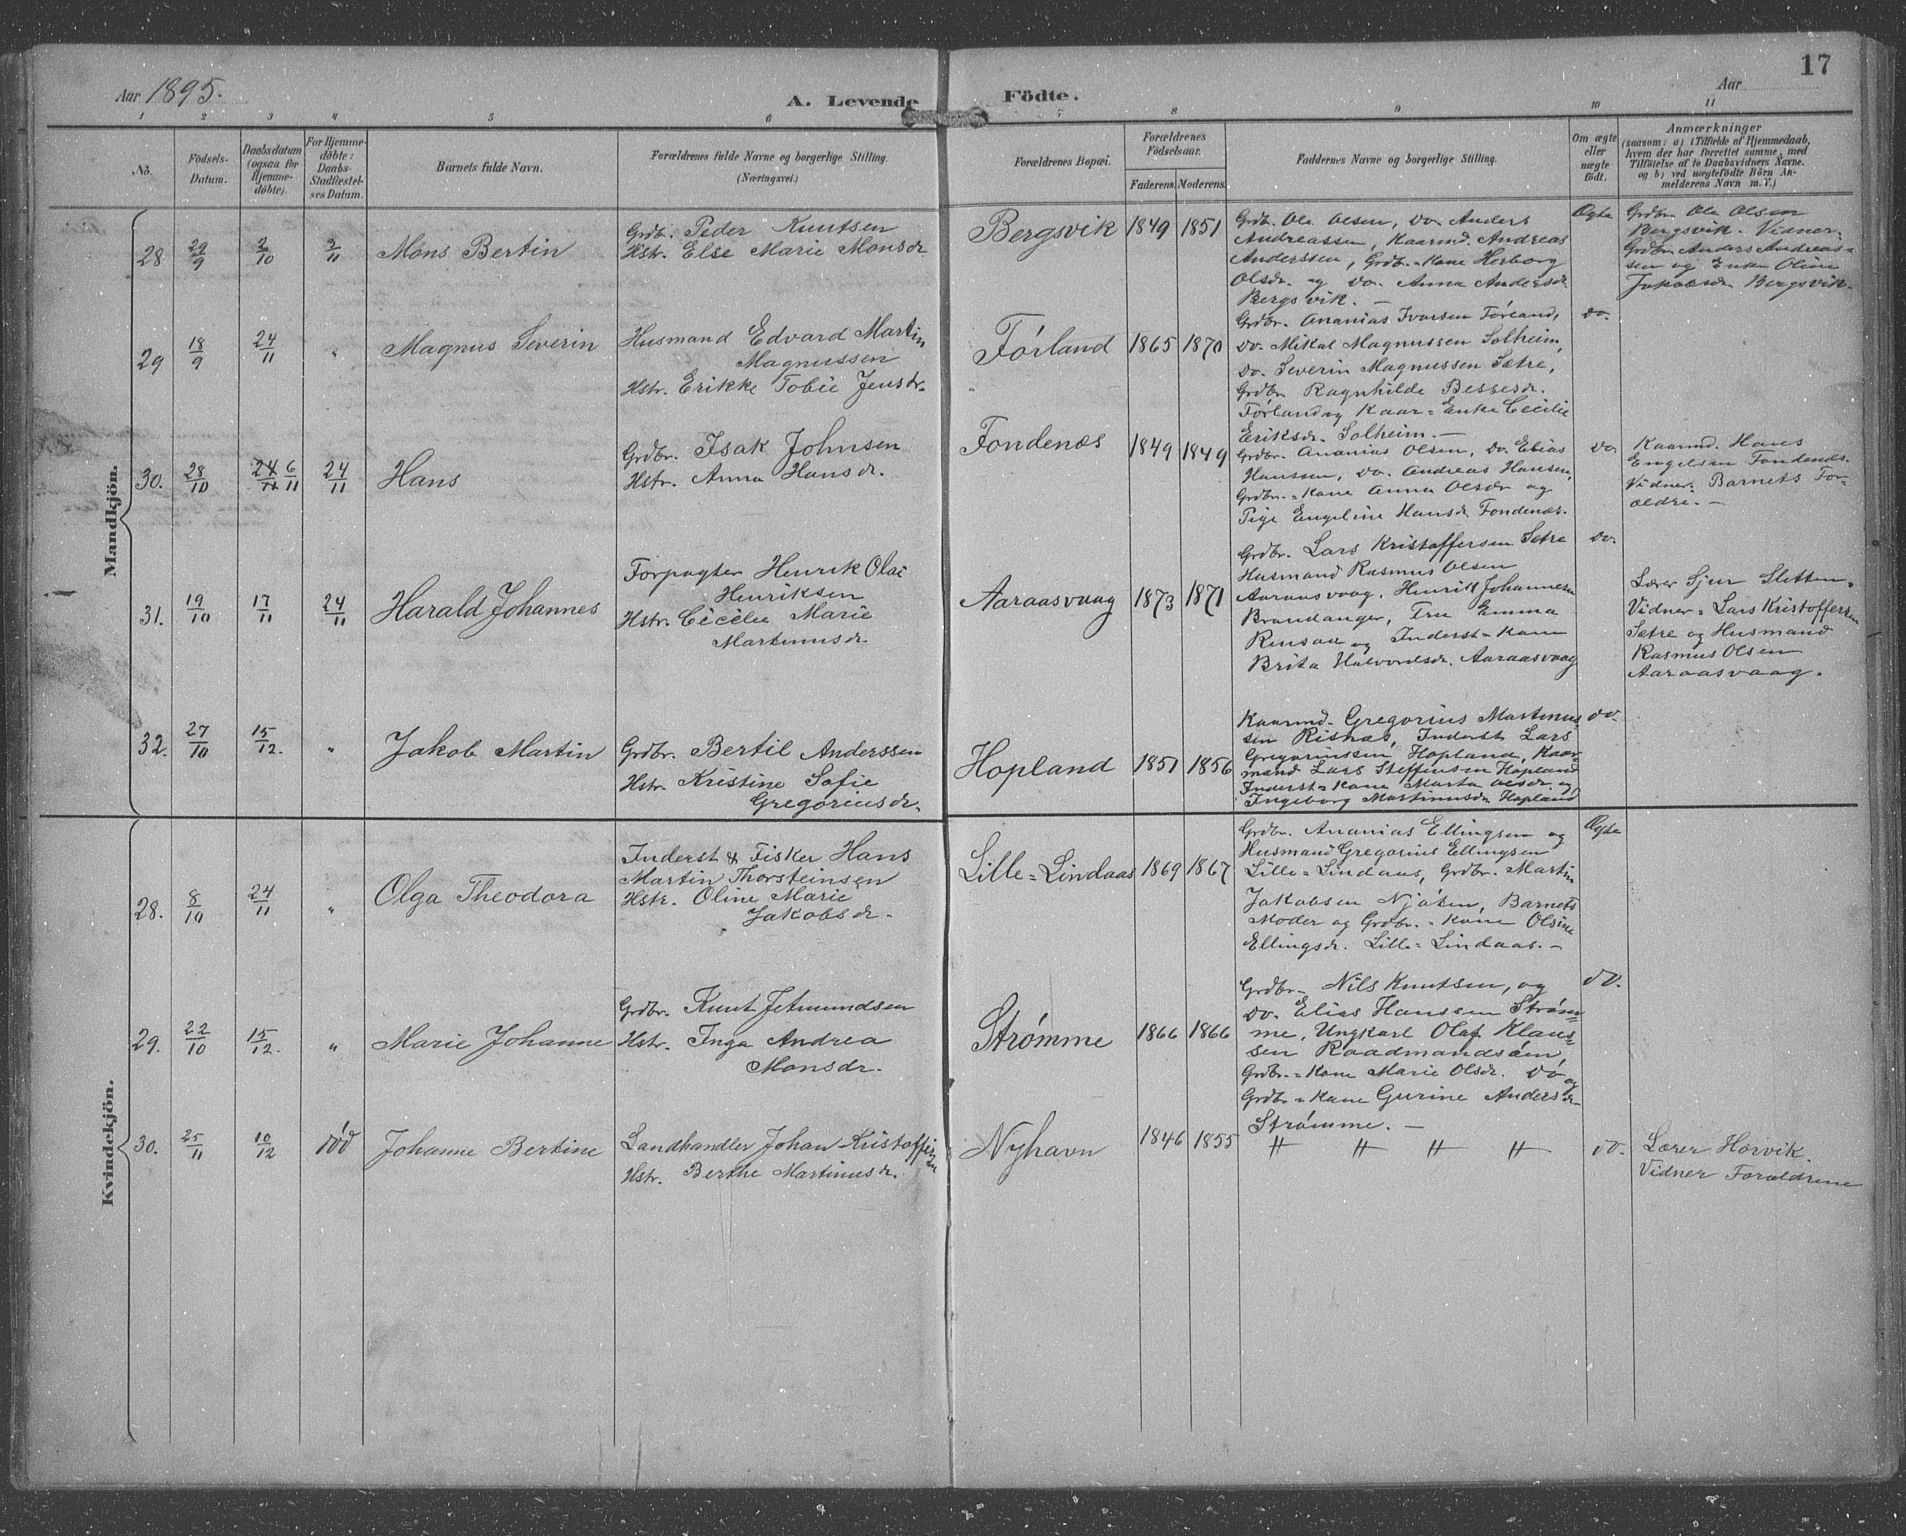 Aar 1895.
A. Levende Födte.
Aar
17
1 2 3 4 5 6 7 8 9 10 11
No.
Födsels-
Datum.
Daabsdatum
(ogsaa for
Hjemme-
döbte).
For Hjemme-
döbte:
Daabs-
Stadfæstel-
ses Datum.
Barnets fulde Navn.
Forældrenes fulde Navne og borgerlige Stilling.
(Næringsvei.)
Forældrenes Bopæl.
Forældrenes
Födselsaar.
Faderens. Moderens.
Faddernes Navne og borgerlige Stilling.
Om ægte
eller
uægte
födt.
Anmærkninger
(saasom: a) i Tilfælde af Hjemmedaab,
hvem der har forrettet samme, med
Tilföielse af to Daabsvidners Navne,
og b) ved uægtefödte Börn An-
melderens Navn m. V.)
Mandkjön.
28 29/9 2/10 3/11 Mons Bertin
Grdbr. Peder Knutsen
Hstr. Else Marie Monsdr
Bergsvik 1849 1851
Grdbr. Ole Olsen, Do. Anders
Andreassen, Kaarmd. Andreas
Anderssen, Grdbr.-Kone Herborg
Olsdr. og Do. Anna Andersdr.
Bergsvik. –
Ægte
Grdbr. Ole Olsen
Bergsvik. Vidner:
Grdbr. Anders Andreas-
sen og Enke Oline
Jakobsdr. Bergsvik.
29 18/9 24/11 " Magnus Severin
Husmand Edvard Martin
Magnussen
Hstr. Erikke Tobie Jensdr.
Førland 1865 1870
Grdbr. Ananias Ivarsen Førland,
Do. Mikal Magnussen Solheim,
Do. Severin Magnussen Sætre,
Grdbr. Ragnhilde Bessesdr.
Førland og Kaar-Enke Cecilie
Eriksdr. Solheim. –
do.
30. 28/10 24/11 6/11 24/11 Hans
Grdbr. Isak Johnsen
Hstr. Anna Hansdr.
Fondenæs 1849 1849
Grdbr. Ananias Olsen, Do. Elias
Hanssen, Do. Andreas Hansen,
Grdbr.-Kone Anna Olsdr og
Pige Engeline Hansdr Fondenæs.
do.
Kaarmd. Hans
Engelsen Fondenæs.
Vidner: Barnets For-
ældre. –
31. 19/10 17/11 24/11 Harald Johannes
Forpagter Henrik Olai
Henriksen
Hstr. Cecilie Marie
Martinusdr.
Aaraasvaag 1873 1871
Grdbr. Lars Kristoffersen Sætre
Husmand Rasmus Olsen
Aaraasvaag. Henrik Johannesen
Brandanger, Fru Emma
og Inderst-Kone
Brita Halvorsdr. Aaraasvaag
do.
Lærer Sjur Sletten.
Vidner: Lars Kristoffersen
Sætre og Husmand
Rasmus Olsen
Aaraasvaag.
32. 27/10 15/12. " Jakob Martin
Grdbr. Bertil Anderssen
Hstr. Kristine Sofie
Gregoriusdr.
Hopland 1851 1856
Kaarmd. Gregorius Martinus-
sen Risnæs, Inderst Lars
Gregoriussen Hopland, Kaar-
mand Lars Steffensen Hopland
Inderst-Kone Marta Olsdr. og
Ingeborg Martinusdr Hopland
do.
Kvindekjön.
28. 8/10 24/11 " Olga Theodora
Inderst & Fisker Hans
Martin Thorsteinsen
Hstr. Oline Marie
Jakobsdr.
Lille-Lindaas 1869 1867
Grdbr. Ananias Ellingsen og
Husmand Gregorius Ellingsen
Lille-Lindaas, Grdbr. Martin
Jakobsen Njøten, Barnets
Moder og Grdbr.-Kone Olsine
Ellingsdr. Lille-Lindaas. –
Ægte
29. 22/10 15/12. " Marie Johanne
Grdbr. Knut Jetmundsen
Hstr. Inga Andrea
Monsdr.
Strømme 1866 1866
Grdbr. Nils Knutsen, og
Do. Elias Hanssen Strøm-
me, Ungkarl Olaf Klaus-
sen Raadmandsøen,
Grdbr.-Kone Marie Olsdr. Do og
Grdbr-Kone Gurine Andersdr
Strømme. –
do.
30. 25/11 10/12 død Johanne Bertine
Landhandler Johan Kristoffersen
Hstr. Berthe Martinusdr.
Nyhavn 1846 1855
" " " "
do.
Lærer Horvik.
Vidner Forældrene